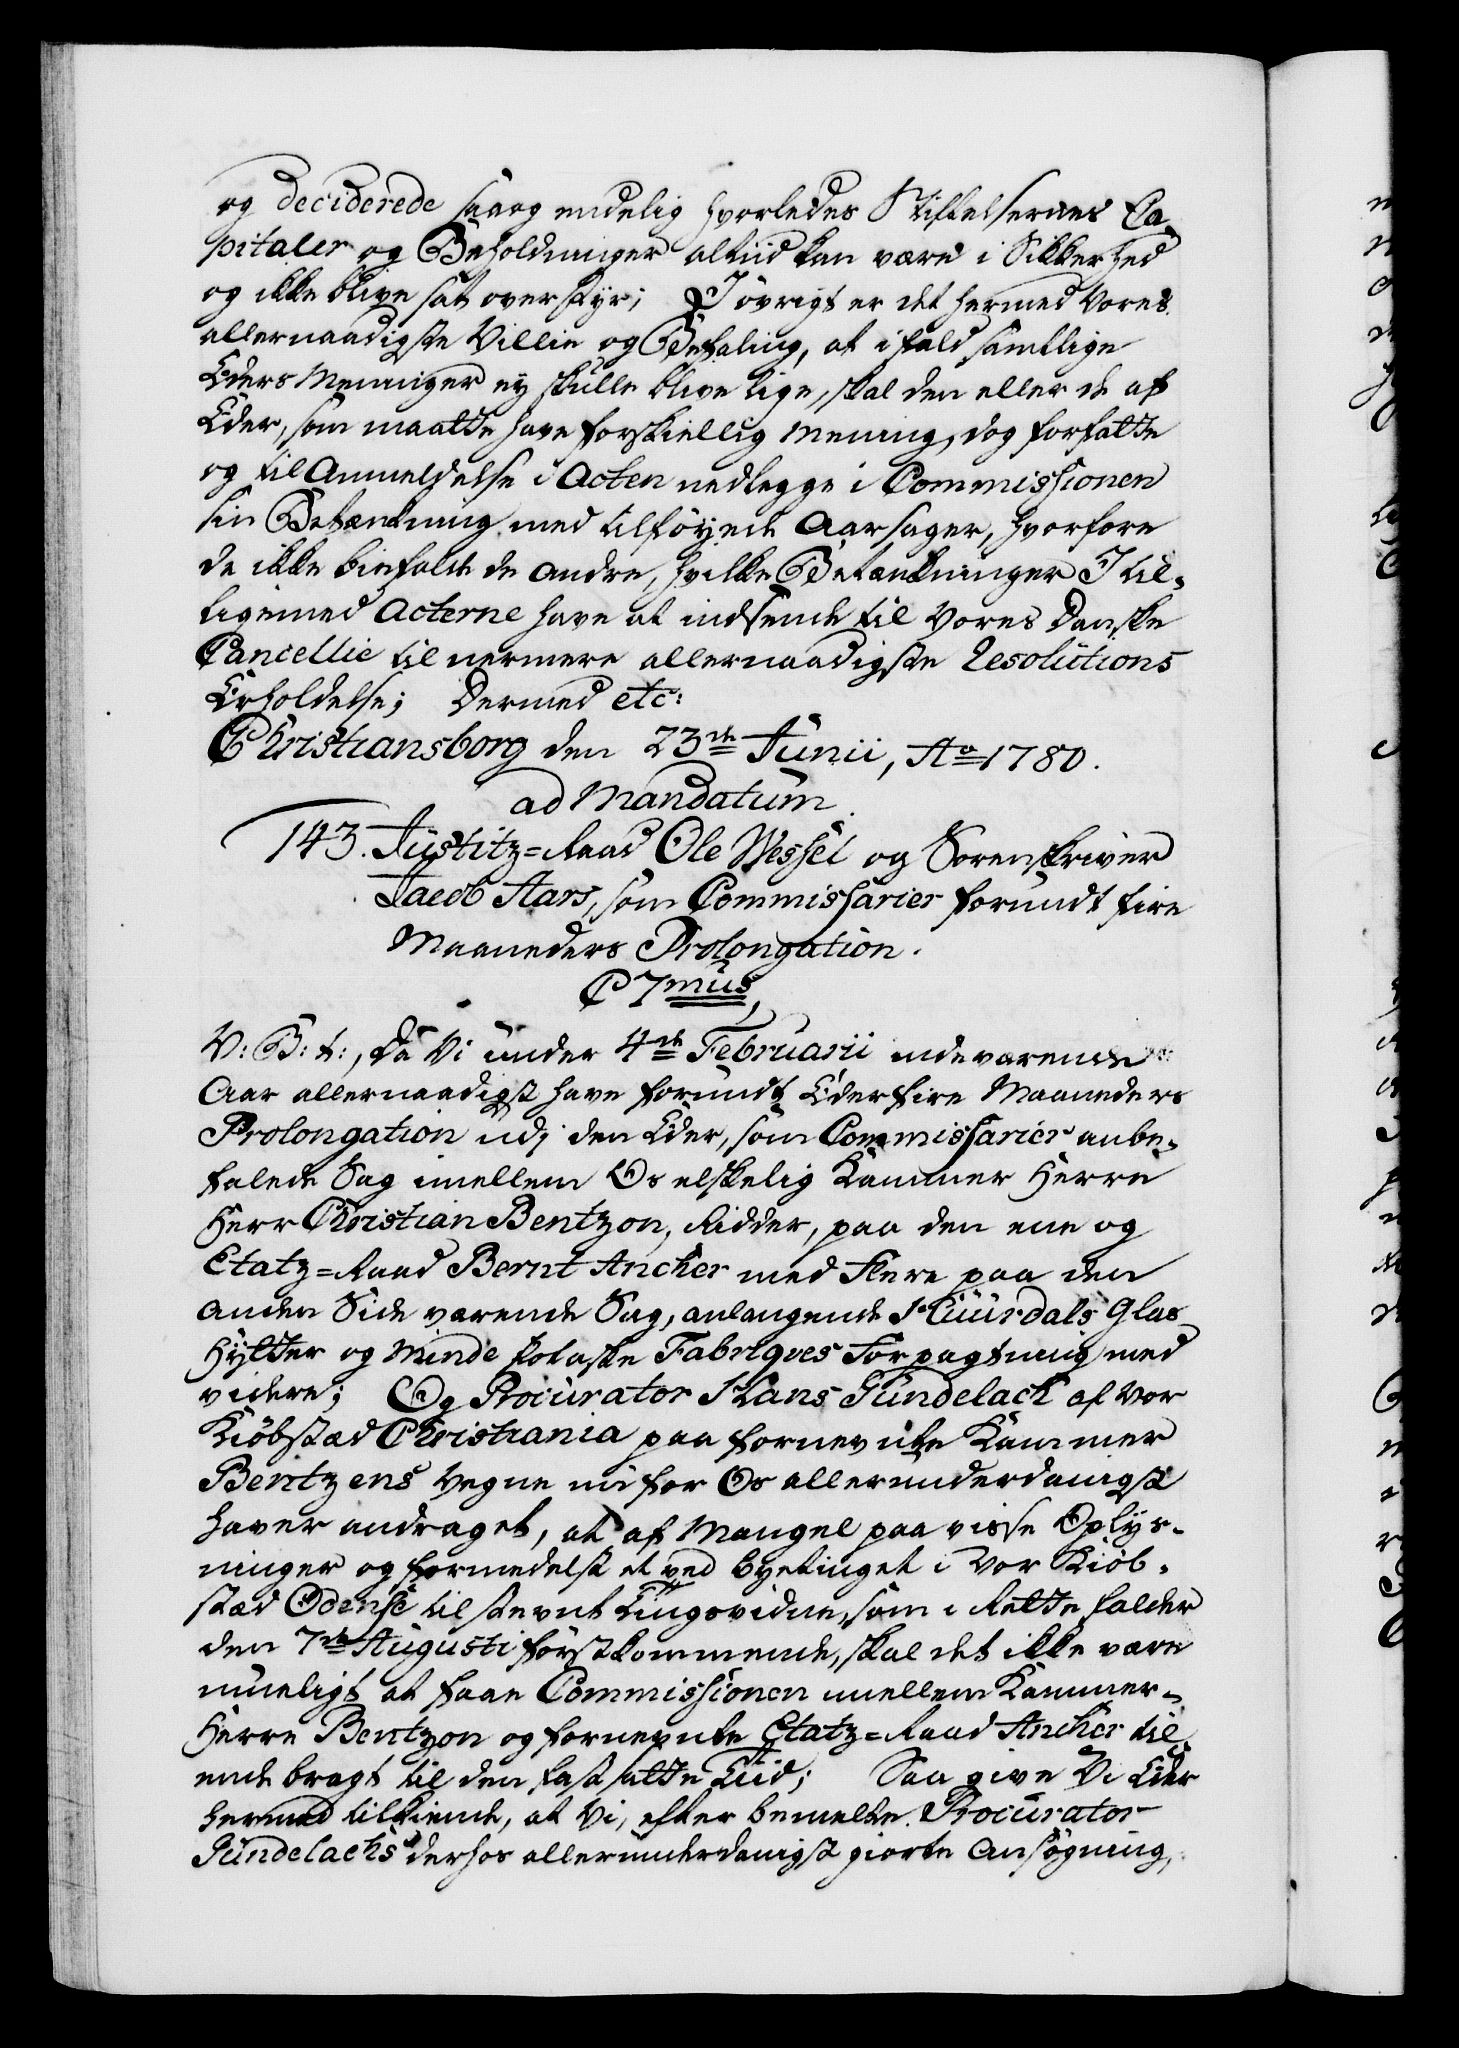 og deciderede saa og endelig hvorledes Stiftelsernes Ca-
pitaler og Beholdninger altiid kan være i Sikkerhed
og ikke blive sat over styr; I øvrigt er det hermed Vores
allernaadigste Villie og Befaling, at ifald samtlige
Eders Meeninger ey skulle blive lige, skal den eller de af
Eder, som maatte have forskiellig Mening, dog forfatte
og til Anmeldelse i Acten nedlegge i Commissionen
sin Betænkning med tilføyede Aarsager, hvorfore
de ikke biefaldt de andre, hvilke Betænkninger I til-
ligemed Acterne have at indsende til Vores Danske
Cancellie til nermere allernaadigste Resolutions
Erholdelse; Dermed etc:
Christiansborg den 23de Junii, Ao 1780.
ad Mandatum.
143. Justitz=Raad Ole Wessel og Sorenskriver
Jacob Aars, som Commissarier forundt fire
Maaneders Prolongation.
C 7mus,
V: B: t:, Da Vi under 4de Februarii indeværende
Aar allernaadigst have forundt Eder fire Maaneders
Prolongation udi den Eder, som Commissarier anbe-
falede Sag imellem Os elskelig Kammer Herre
Herr Christian Bentzon, Ridder, paa den ene og
Etatz=Raad Bernt Ancher med Flere paa den
anden Side værende Sag, anlangende Huurdals Glas
Hytter og Minde Potaske Fabriqves Forpagtning med
videre; Og Procurator Hans Gundelach af Vor
Kiöbstæd Christiania paa fornevnte Kammer
Bentzens Vegne nu for Os allerunderdanigst
haver andraget, at af Mangel paa visse Oplys-
ninger og formedelst et ved byetinget i Vor Kiöb-
stæd Odense til stevnt Tingsvidne, som i Rette falder
den 7de Augusti förstkommende, skal det ikke være
mueligt at faae Commissionen imellem Kammer-
Herre Bentzon og fornevnte Etatz=Raad Ancher til
ende bragt til den fastsatte Tiid; Saa give Vi Eder
hermed tilkiende, at Vi, efter bemelte Procurator
Gundelachs derhos allerunderdanigst giorte Ansøgning,